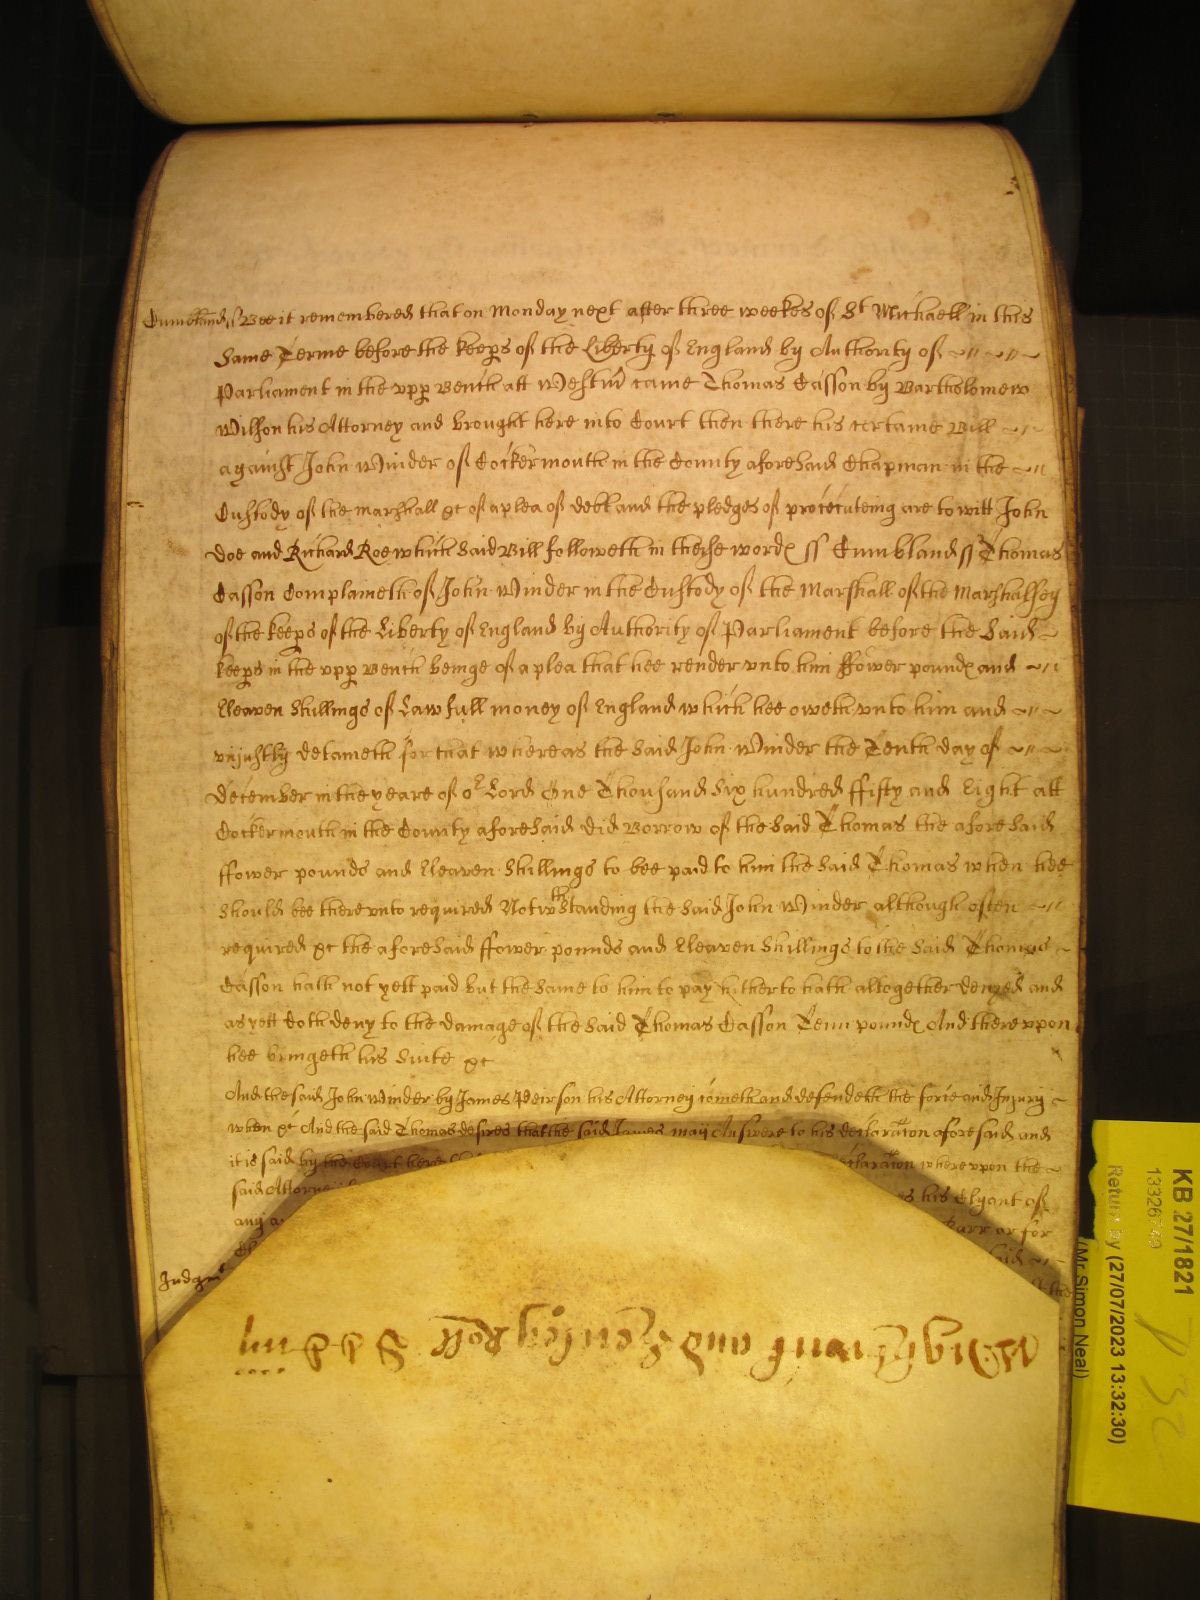 Cumbland ss Bee it remembered that on Monday next after three weekes of St Michaell in this
same Terme before the keeps of the Liberty of England by Authority of
Parliament in the upp Bench att Westm came Thomas Casson by Bartholomew
Wilson his Attorney and brought here into Court then there his certaine Bill
against John Winder of Cockermouth in the County aforesaid Chapman in the
Custody of the marshall &c of a plea of debt and the pledges of prosecuteing are to witt John
Doe and Richard Roe which said Bill followeth in theise words ss Cumbland ss Thomas
Casson Complaineth of John Winder in the Custody of the Marshall of the Marshalsey
of the keeps of the Liberty of England by Authority of Parliament before the said
keeps in the upp Bench beinge of a plea that hee render unto him ffower pounds and
Eleaven shillings of Lawfull money of England which hee oweth unto him and
unjustly detaineth for that whereas the said John Winder the Tenth day of
December in the yeare of or Lord One Thousand six hundred ffifty and Eight att
Cockermouth in the County aforesaid did Borrow of the said Thomas the aforesaid
ffower pounds and Eleaven shillings to bee paid to him the said Thomas when hee
should bee thereunto required Notwthstanding the said John Winder although often
required &c the aforesaid ffower pounds and Eleaven shillings to the said Thomas
Casson hath not yett paid but the same to him to pay hitherto hath altogether denyed and
as yett doth deny to the damage of the said Thomas Casson Tenn pounds And thereupon
hee bringeth his suite &c
And the said John Winder by James Peirson his Attorney cometh and defendeth the force and Injury
when &c And the said Thomas desires that the said James may Answere to his declaracon aforesaid and
it is said by the Court here declaracon whereupon the
said Attorney his Clyent of
any barr or for
said
Judgmt
KB 27/1821
13326740
Return by (27/07/2023 13:32:30)
(Mr Simon Neal)